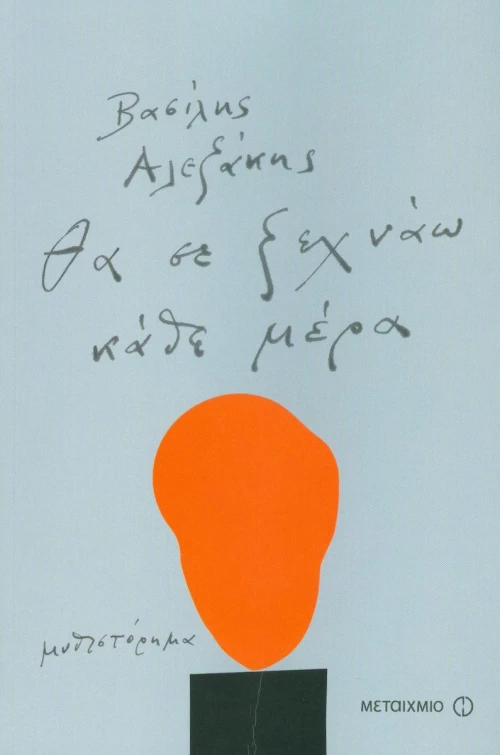 Βασίλης
Αλεξάκης
θα σε ξεχνάω
κάθε μέρα
μυθιστόρημα
ΜΕΤΑΙΧΜΙΟ